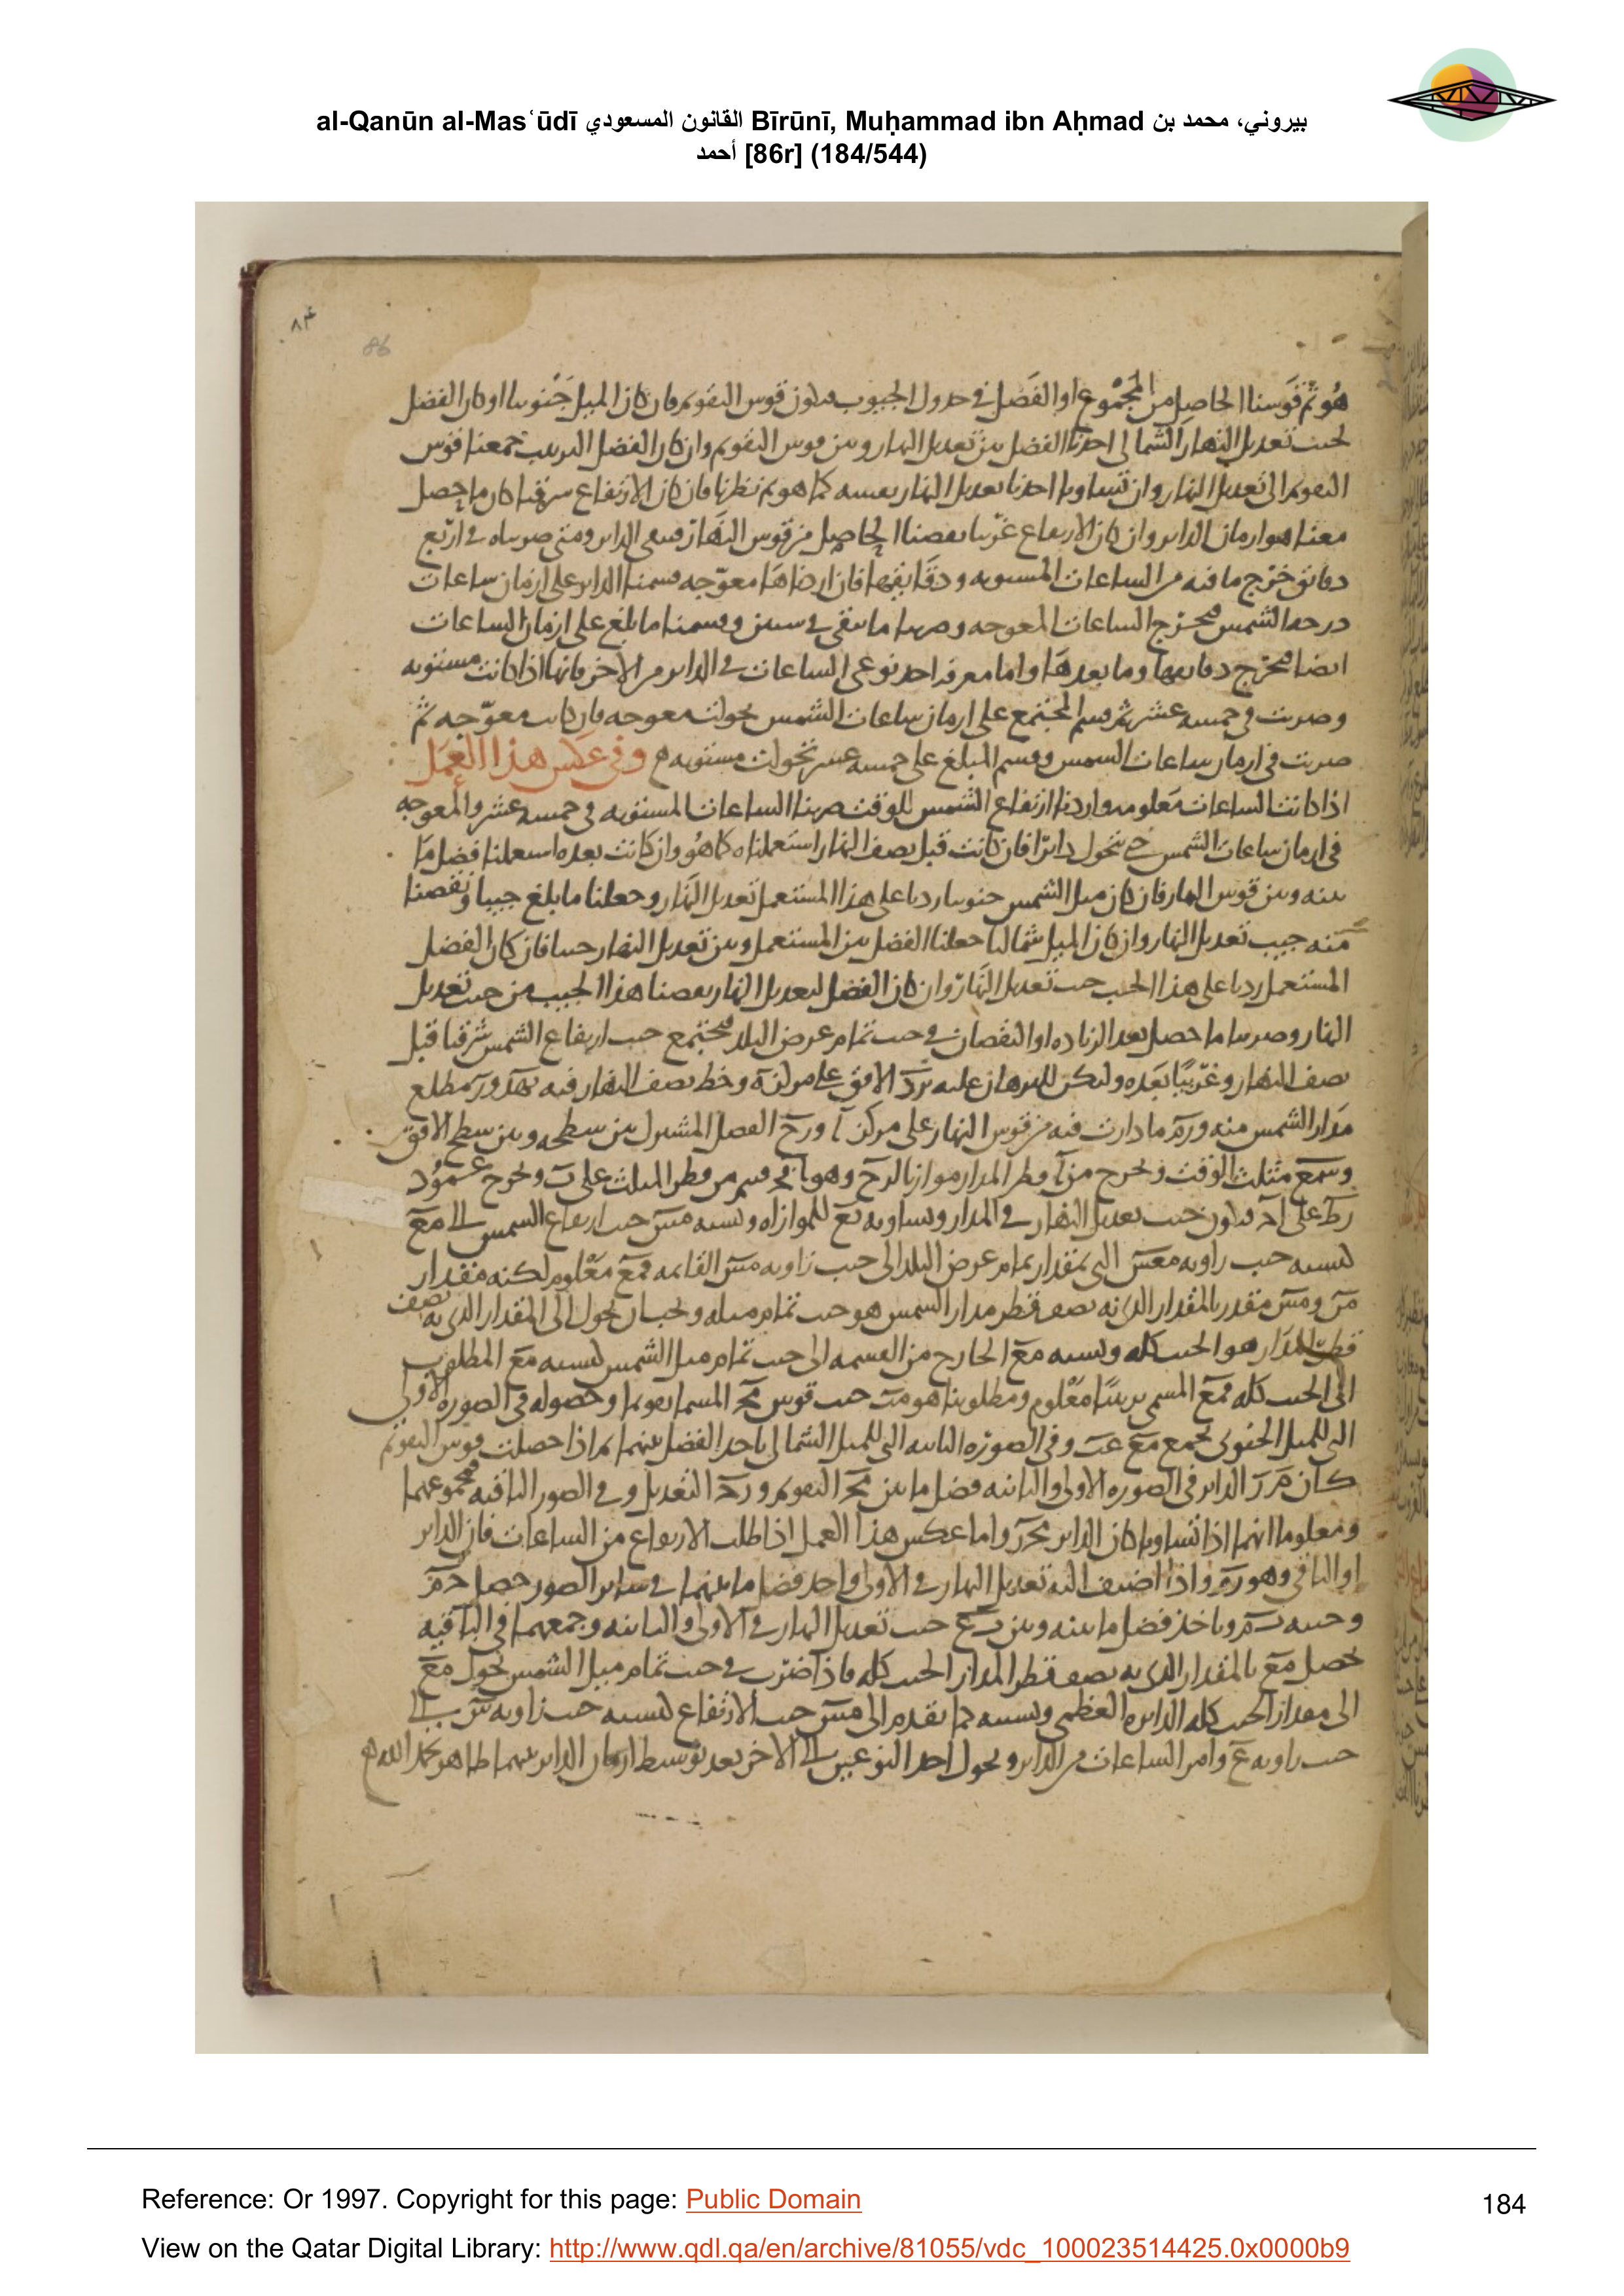 al-Qanūn al-Mas‘ūdī القانون المسعودي Bīrūnī, Muḥammad ibn Aḥmad بيروني، محمد بن
أحمد [86r] (184/544)
٨٤
86
هو ثم قوسنا الحاصل من المجموع او الفضل في جدول الجيوب فيكون قوس التقويم فان كان الميل جنوبيا او كان الفضل
لجيب تعديل النهار الشمالي اخذنا الفضل بين تعديل النهار وبين قوس التقويم وان كان الفضل للترتيب جمعنا قوس
التقويم الى تعديل النهار وان تساويا اخذنا تعديل النهار بعينه كما هو ثم نظرنا فان كان الارتفاع شرقيا كان ما حصل
معنا هو ازمان الداير وان كان الارتفاع غربيا نقصنا الحاصل من قوس النهار فيبقى الداير ومتى ضربناه في اربع
دقائق خرج ما فيه من الساعات المستويه ودقايقها فان اردناها معوجه قسمنا الداير على ازمان ساعات
درجه الشمس فيخرج الساعات المعوجه وضربنا ما يبقى في ستين وقسمنا ما بلغ على ازمان الساعات
ايضا فيخرج دقايقها وما بعدها واما معرفه احد نوعي الساعات في الداير من الاخر فانها اذا كانت مستويه
وضربت في خمسه عشر ثم قسم المجتمع على ازمان ساعات الشمس تحولت معوجه فان كانت معوجه ثم
ضربت في ازمان ساعات الشمس وقسم المبلغ على خمسه عشر تحولت مستويه وفي عكس هذا العمل
اذا كانت الساعات معلومه واردنا ارتفاع الشمس للوقت ضربنا الساعات المستويه في خمسه عشر والمعوجه
في ازمان ساعات الشمس حتى تتحول دايرا فان كانت قبل نصف النهار استعملناه كما هو وان كانت بعده استعملنا فضل ما
بينه وبين قوس النهار فان كان ميل الشمس جنوبيا زدنا على هذا المستعمل تعديل النهار وجعلنا ما بلغ جيبا ونقصنا
منه جيب تعديل النهار وان كان الميل شماليا جعلنا الفضل بين المستعمل وبين تعديل النهار جيبا فان كان الفضل
المستعمل زدنا على هذا الجيب جيب تعديل النهار وان كان الفضل لتعديل النهار نقصنا هذا الجيب من جيب تعديل
النهار وضربنا ما حصل بعد الزياده او النقصان في جيب تمام عرض البلد فيجتمع جيب ارتفاع الشمس شرقيا قبل
نصف النهار وغربيا بعده وليكن للبرهان عليه الافق على مركز وخط نصف النهار فيه مطلع
مدار الشمس منه ما دارت فيه من قوس النهار على مركز الفصل المشترك بين سطحه وبين سطح الافق
مثلث الوقت ونخرج من قطر المدار موازيا وهو قسم من قطر المثلث على ونخرج عمود
على فيكون جيب تعديل النهار في المدار ويساويه للموازاه ونسبه جيب ارتفاع الشمس الى
كنسبه جيب زاويه التي بمقدار تمام عرض البلد الى جيب زاويه القائمه معلوم لكنه مقدار
متقدر بالمقدار الذي به نصف قطر مدار الشمس هو جيب تمام ميله ونحب ان نحول الى المقدار الذي به نصف
قطر المدار هو الجيب كله ونسبه الخارج من القسمه الى جيب تمام ميل الشمس كنسبه المطلوب
الى الجيب كله المسمى ترتيبا معلوم ومطلوبنا هو جيب قوس المسما تقويما وحصوله في الصوره الاولى
التي للميل الجنوبي بجمع وفي الصوره الثانيه التي للميل الشمالي باخذ الفضل بينهما ثم اذا حصلت قوس التقويم
كان الداير في الصوره الاولى والثانيه فضل ما بين التقويم التعديل وفي الصور الباقيه مجموعهما
ومعلوم انهما اذا تساويا كان الداير واما عكس هذا العمل اذا طلب الارتفاع من الساعات فان الداير
او الباقي وهو واذا اضيف اليه تعديل النهار في الاولى واخذ فضل ما بينهما في ساير الصور حصل
وجيبه وناخذ فضل ما بينه وبين جيب تعديل النهار في الاولى والثانيه وجمعهما في الباقيه
حصل بالمقدار الذي به نصف قطر المدار الجيب كله فاذا ضرب في جيب تمام ميل الشمس تحول
الى مقدار الجيب كله الدايره العظمى ونسبته كما تقدم الى جيب الارتفاع كنسبه جيب زاويه الى
جيب زاويه وامر الساعات من الداير وتحول احد النوعين الى الاخر بعد توسط ازمان الداير بينهما ظاهر بحمد الله
Reference: Or 1997. Copyright for this page: Public Domain
184
View on the Qatar Digital Library: http://www.qdl.qa/en/archive/81055/vdc_100023514425.0x0000b9